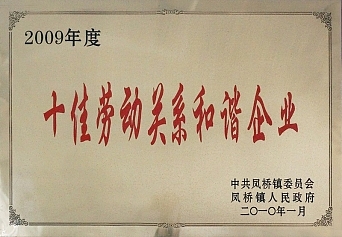 2009年度
十佳劳动关系和谐企业
中共凤桥镇委员会
凤桥镇人民政府
二〇一〇年一月